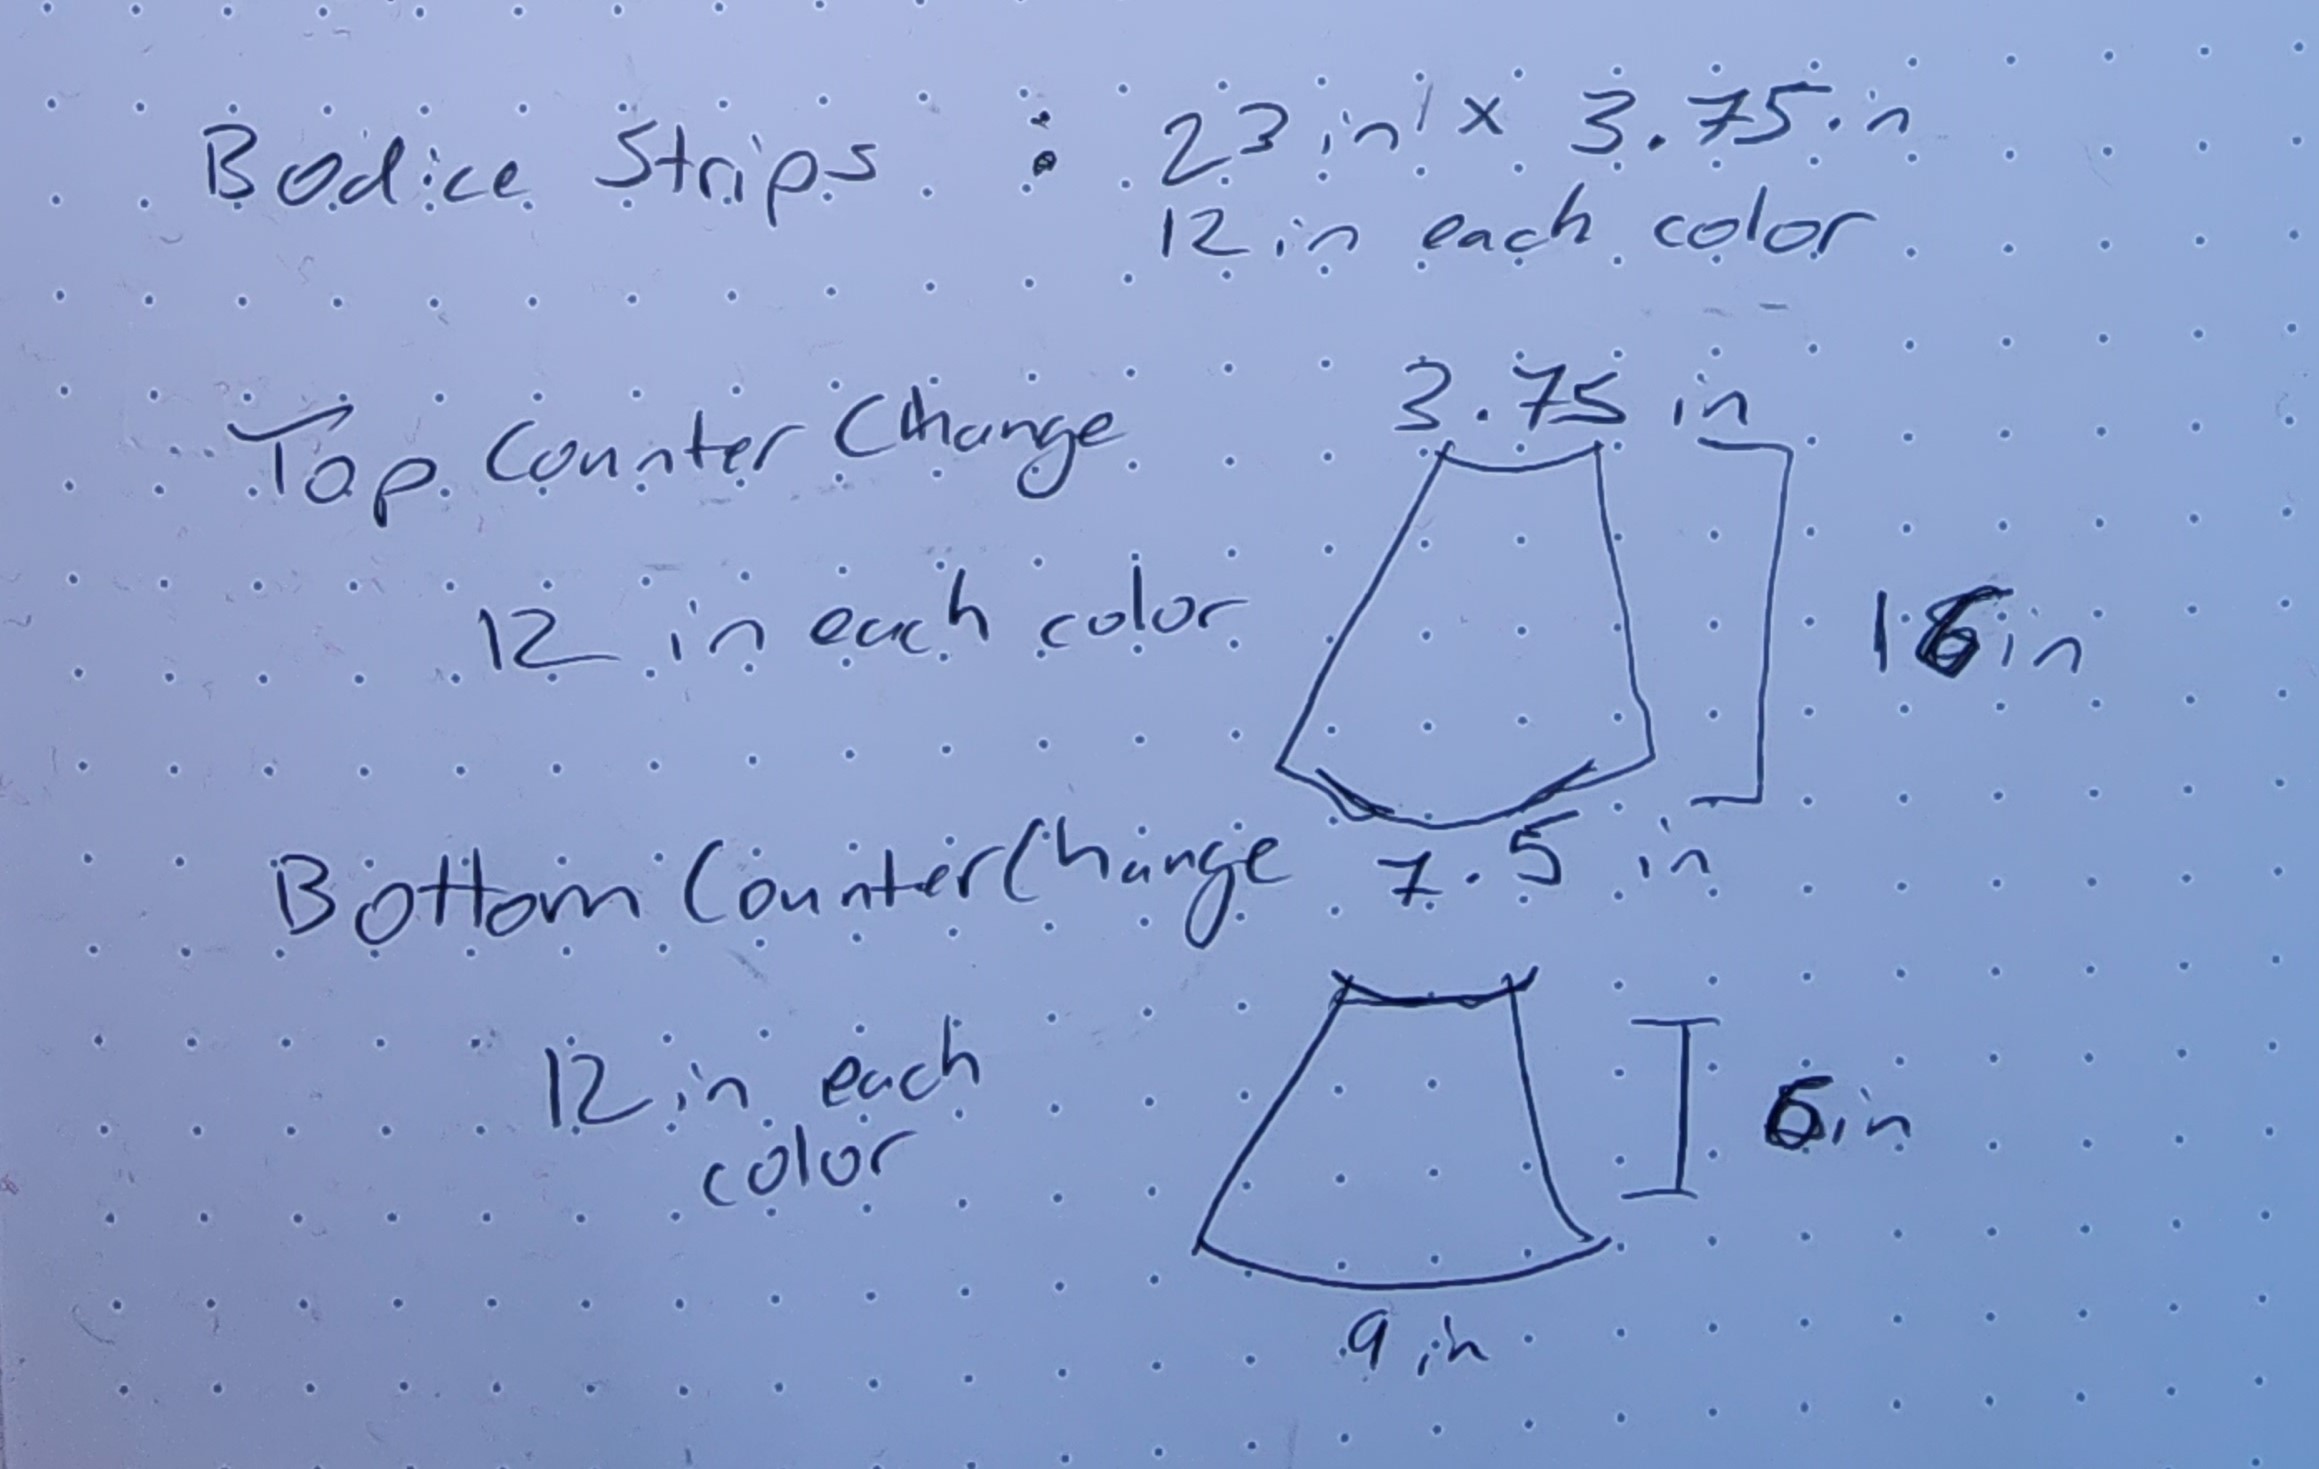 Bodice Strips : 23 in x 3.75 in
12 in each color
Top Counter Change
3.75 in
12 in each color
16 in
7.5 in
Bottom Counter Change
12 in each
color
6 in
9 in